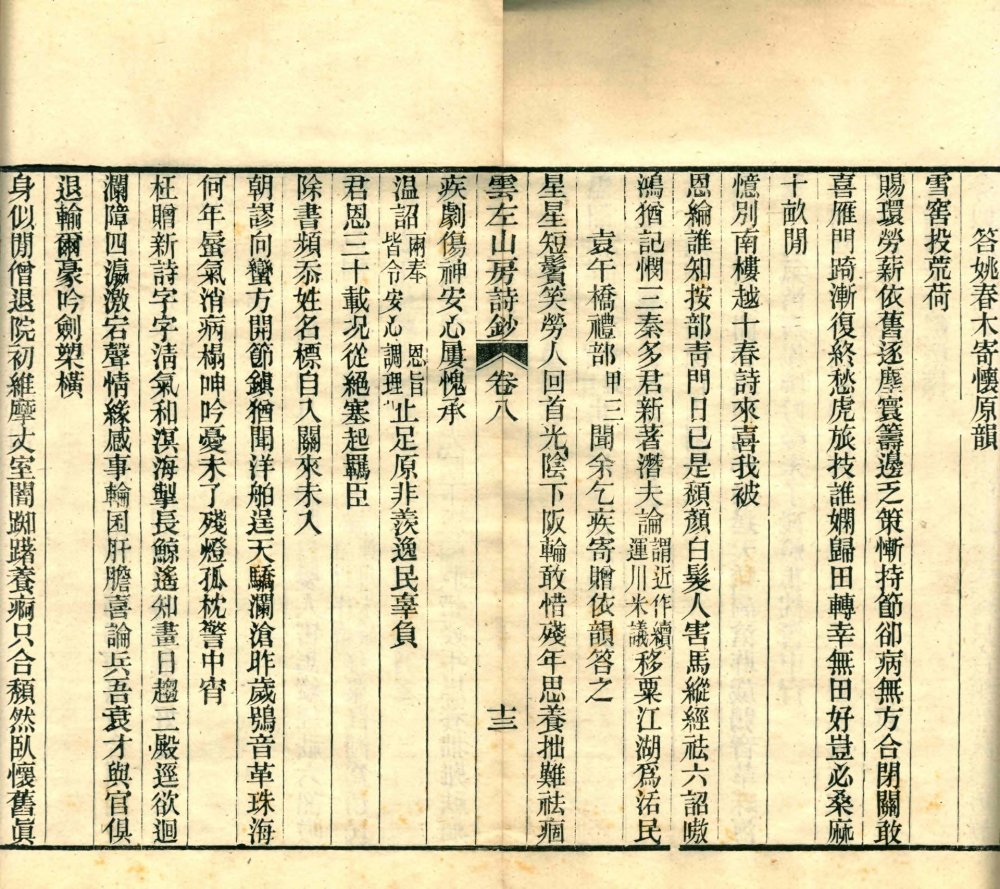 答姚春木寄懷原韻
雪窖投荒荷
賜環勞薪依舊逐塵寰籌邊乏策慚持節卻病無方合閉關敢
喜雁門踦漸復終愁虎旅技誰嫻歸田轉幸無田好豈必桑麻
十畝閒
憶別南樓越十春詩來喜我被
恩綸誰知按部青門日已是頹顏白髮人害馬縱經祛六詔嗷
鴻猶記憫三秦多君新著潛夫論謂近作續運川米議移粟江湖爲活民
袁午橋禮部甲三聞余乞疾寄贈依韻答之
星星短鬢笑勞人回首光陰下阪輪敢惜殘年思養拙難祛痼
雲左山房詩鈔 卷八 十三
疾劇傷神安心屢愧承
温詔兩奉 恩旨皆令安心調理止足原非羨逸民辜負
君恩三十載況從絕塞起羈臣
除書頻忝姓名標自入關來未入
朝謬向蠻方開節鎮猶聞洋舶逞天驕瀾滄昨歲鴞音革珠海
何年蜃氣消病榻呻吟憂未了殘燈孤枕警中宵
枉贈新詩字字淸氣和溟海掣長鯨遙知晝日趨三殿逕欲迴
瀾障四瀛激宕聲情緣感事輪囷肝膽喜論兵吾衰才與官俱
退輸爾豪吟劍槊橫
身似閒僧退院初維摩丈室闇踟躇養疴只合頹然臥懷舊眞